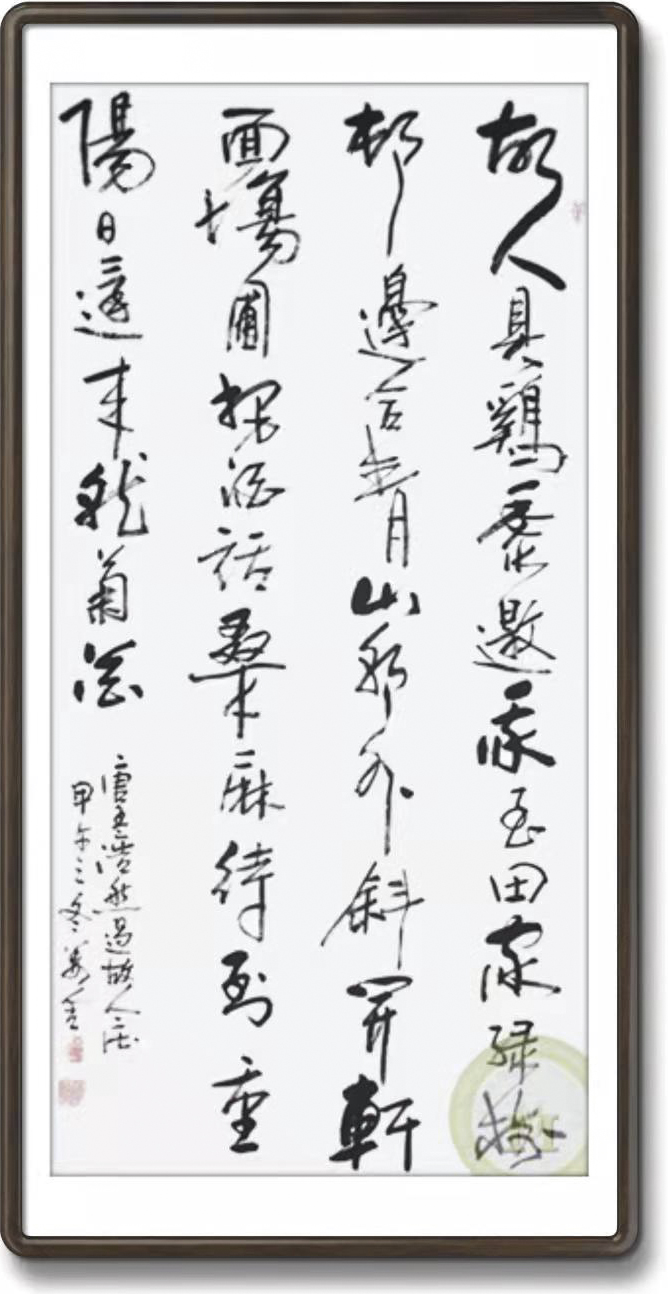 故人具鷄黍邀我至田家緑樹
村邊合青山郭外斜開軒
面場圃把酒話桑麻待到重
陽日還来就菊花
唐孟浩然過故人庄
甲午之冬